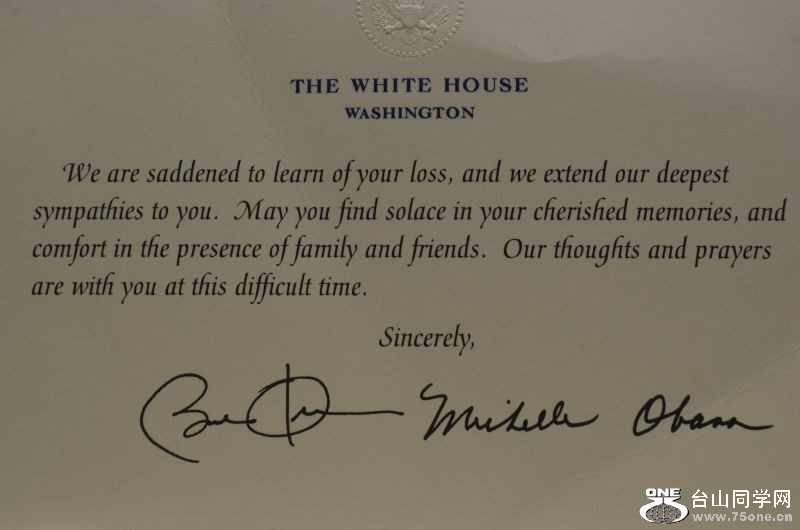 THE WHITE HOUSE
WASHINGTON
We are saddened to learn of your loss, and we extend our deepest
sympathies to you. May you find solace in your cherished memories, and
comfort in the presence of family and friends. Our thoughts and prayers
are with you at this difficult time.
Sincerely,
Michelle Obama
ONE
75
台山同学网
www.75one.cn